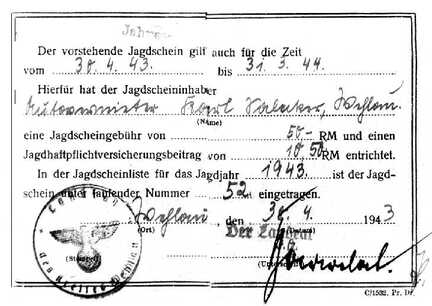 Der vorstehende Jagdschein gilt auch für die Zeit
vom 30.4.43. bis 31.3.44.
Hierfür hat der Jagdscheininhaber
Wehlau.
(Name)
eine Jagdscheingebühr von 50- RM und einen
Jagdhaftpflichtversicherungsbeitrag von 10 50 RM entrichtet.
In der Jagdscheinliste für das Jagdjahr 1943. ist der Jagd-
schein unter laufender Nummer 52 eingetragen.
Wehlau, den 30. 4. 1943
(Ort) (Datum)
Der Landrat
(Stempel)
C/1532. Pr. Dr.